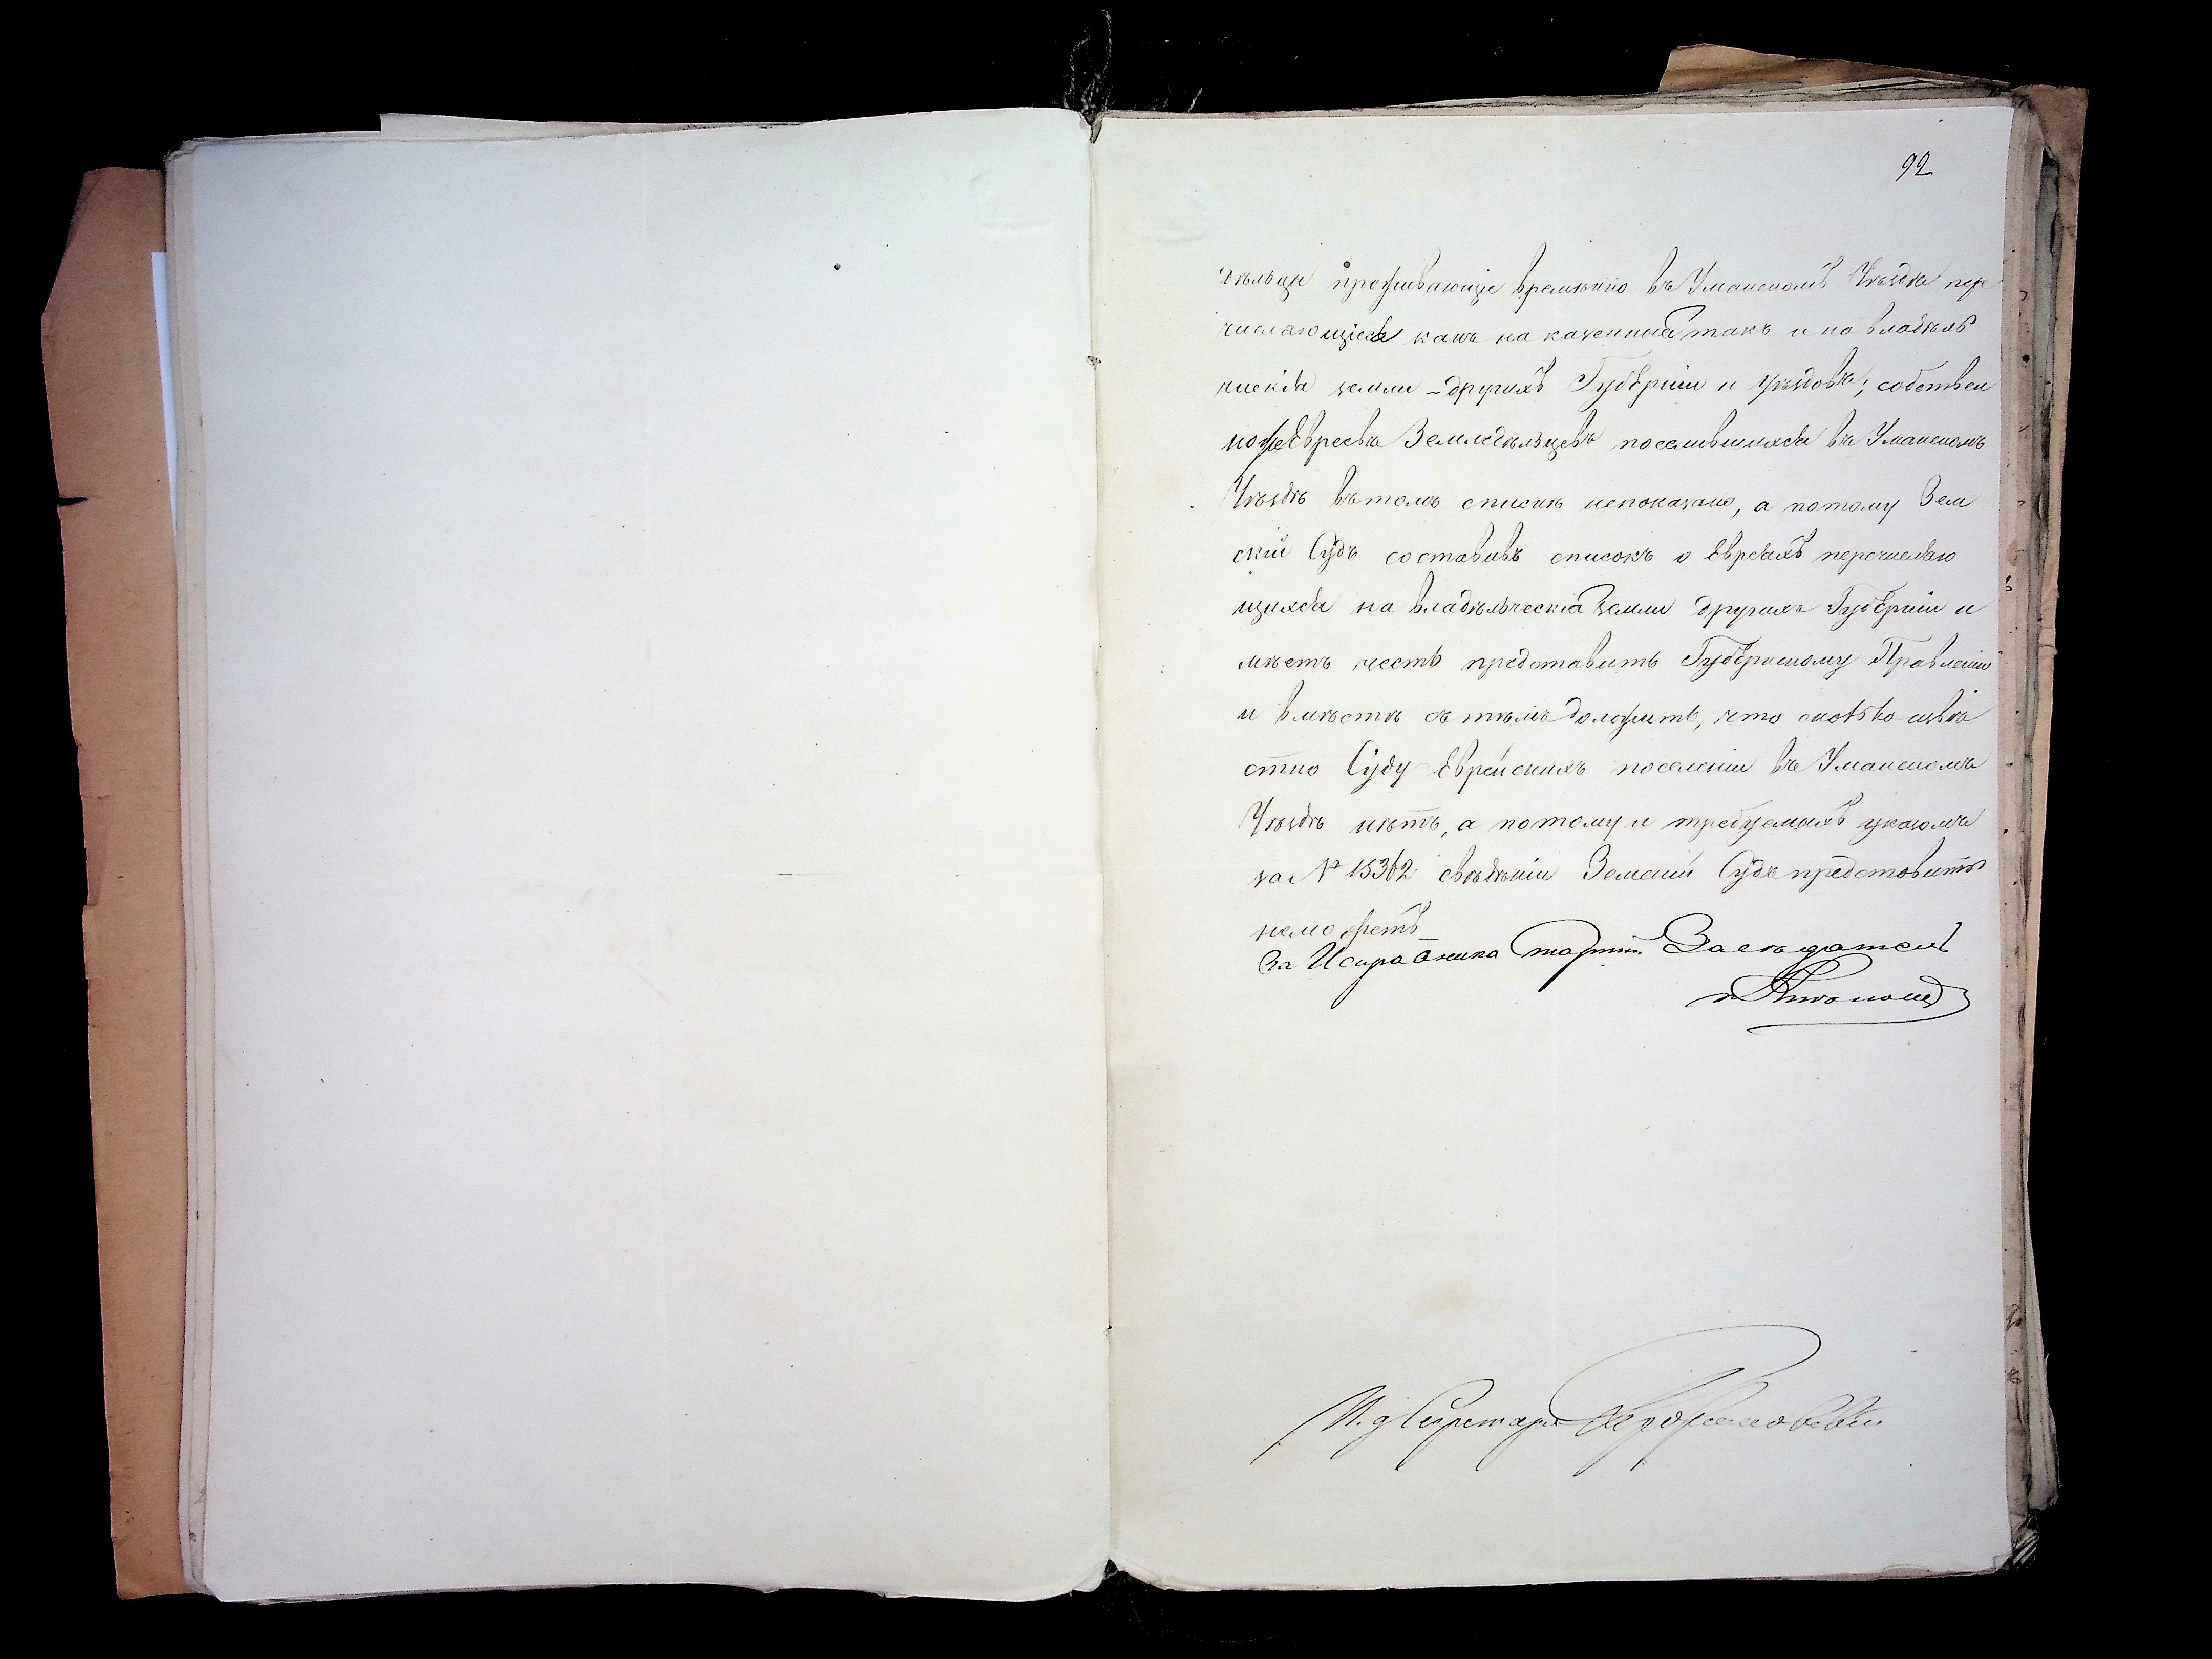 92
дѣльцы проживающіе временно въ Уманскомъ Уѣздѣ пере
числяющіеся какъ на казенныя такъ и на владѣль
ческія земли другихъ Губерніи и уѣздовъ; собствен
но же Евреевъ Земледѣльцевъ поселившихся въ Уманскомъ
Уѣздѣ въ томъ спискѣ непоказано, а потому Зем
скій Судъ составивъ списокъ о Евреяхъ перечисляю
щихся на владѣльческія Земли другихъ Губерніи и
мѣетъ честь представить Губернскому Правленію
и вмѣстѣ съ тѣмъ доложить, что сколько извѣ
стно Суду Еврейскихъ поселеніи въ Уманскомъ
Уѣздѣ нѣтъ, а потому и требуемыхъ указомъ
за № 15362 свѣдѣніи Земскій Судъ представить
неможетъ
За Исправника Старшій Засѣдатель
И. д. Секретаря